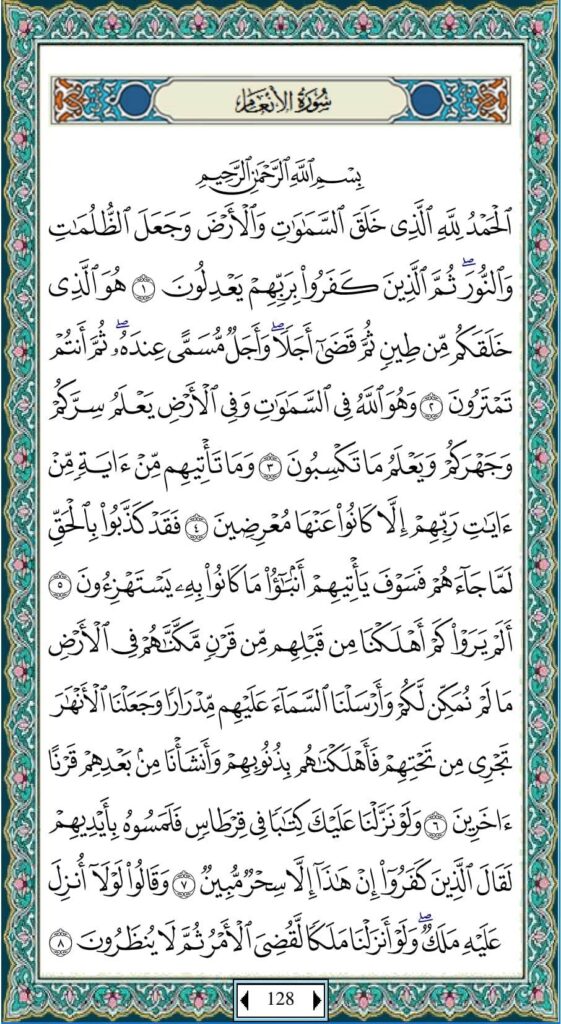 سُورَةُ الأَنْعَامِ
بِسْمِ اللَّهِ الرَّحْمَٰنِ الرَّحِيمِ
الْحَمْدُ لِلَّهِ الَّذِى خَلَقَ السَّمَٰوَٰتِ وَالْأَرْضَ وَجَعَلَ الظُّلُمَٰتِ
وَالنُّورَ ۖ ثُمَّ الَّذِينَ كَفَرُوا۟ بِرَبِّهِمْ يَعْدِلُونَ ١ هُوَ الَّذِى
خَلَقَكُم مِّن طِينٍ ثُمَّ قَضَىٰٓ أَجَلًا ۖ وَأَجَلٌ مُّسَمًّى عِندَهُۥ ۖ ثُمَّ أَنتُمْ
تَمْتَرُونَ ٢ وَهُوَ اللَّهُ فِى السَّمَٰوَٰتِ وَفِى الْأَرْضِ يَعْلَمُ سِرَّكُمْ
وَجَهْرَكُمْ وَيَعْلَمُ مَا تَكْسِبُونَ ٣ وَمَا تَأْتِيهِم مِّنْ ءَايَةٍ مِّنْ
ءَايَٰتِ رَبِّهِمْ إِلَّا كَانُوا۟ عَنْهَا مُعْرِضِينَ ٤ فَقَدْ كَذَّبُوا۟ بِالْحَقِّ
لَمَّا جَآءَهُمْ فَسَوْفَ يَأْتِيهِمْ أَنۢبَٰٓؤُا۟ مَا كَانُوا۟ بِهِۦ يَسْتَهْزِءُونَ ٥
أَلَمْ يَرَوْا۟ كَمْ أَهْلَكْنَا مِن قَبْلِهِم مِّن قَرْنٍ مَّكَّنَّٰهُمْ فِى الْأَرْضِ
مَا لَمْ نُمَكِّن لَّكُمْ وَأَرْسَلْنَا السَّمَآءَ عَلَيْهِم مِّدْرَارًا وَجَعَلْنَا الْأَنْهَٰرَ
تَجْرِى مِن تَحْتِهِمْ فَأَهْلَكْنَٰهُم بِذُنُوبِهِمْ وَأَنشَأْنَا مِنۢ بَعْدِهِمْ قَرْنًا
ءَاخَرِينَ ٦ وَلَوْ نَزَّلْنَا عَلَيْكَ كِتَٰبًا فِى قِرْطَاسٍ فَلَمَسُوهُ بِأَيْدِيهِمْ
لَقَالَ الَّذِينَ كَفَرُوٓا۟ إِنْ هَٰذَآ إِلَّا سِحْرٌ مُّبِينٌ ٧ وَقَالُوا۟ لَوْلَآ أُنزِلَ
عَلَيْهِ مَلَكٌ ۖ وَلَوْ أَنزَلْنَا مَلَكًا لَّقُضِىَ الْأَمْرُ ثُمَّ لَا يُنظَرُونَ ٨
128